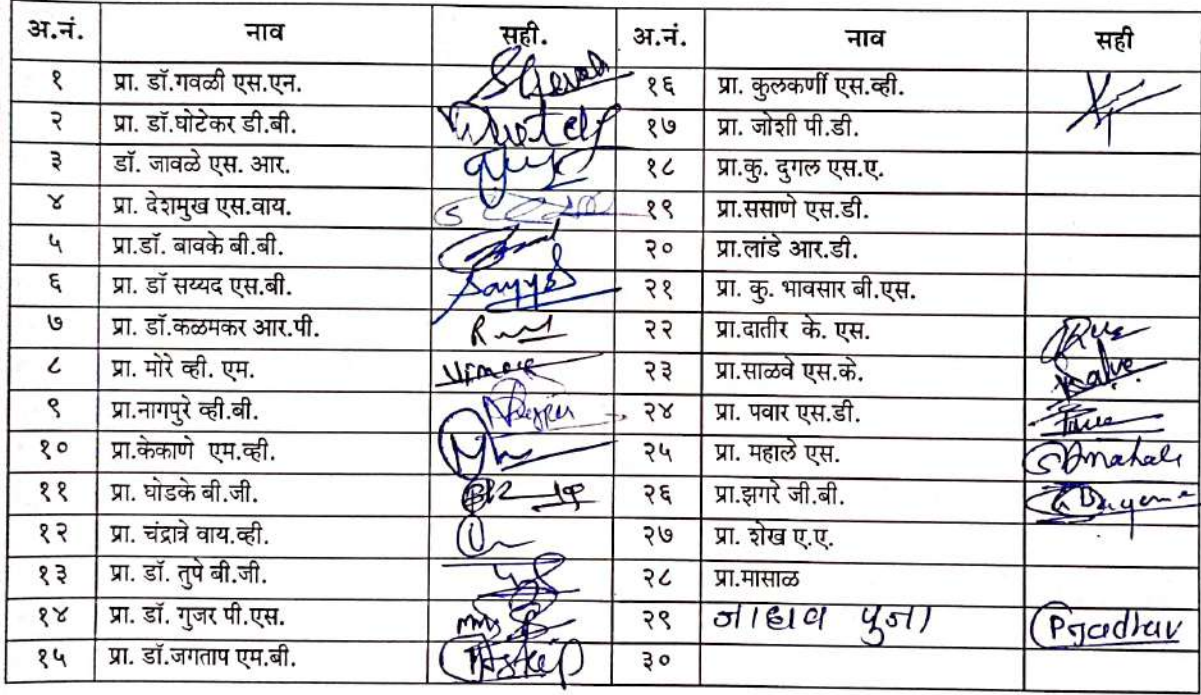 अ.नं. नाव सही. अ.नं. नाव सही
१ प्रा. डॉ.गवळी एस.एन. १६ प्रा. कुलकर्णी एस.व्ही.
२ प्रा. डॉ.घोटेकर डी.बी. १७ प्रा. जोशी पी.डी.
३ डॉ. जावळे एस. आर. १८ प्रा.कु. दुगल एस.ए.
४ प्रा. देशमुख एस.वाय. १९ प्रा.ससाणे एस.डी.
५ प्रा.डॉ. बावके बी.बी. २० प्रा.लांडे आर.डी.
६ प्रा. डॉ सय्यद एस.बी. २१ प्रा. कु. भावसार बी.एस.
७ प्रा. डॉ.कळमकर आर.पी. २२ प्रा.दातीर के. एस.
८ प्रा. मोरे व्ही. एम. vmore २३ प्रा.साळवे एस.के.
९ प्रा.नागपुरे व्ही.बी. २४ प्रा. पवार एस.डी.
१० प्रा.केकाणे एम.व्ही. २५ प्रा. महाले एस.
११ प्रा. घोडके बी.जी. २६ प्रा.झगरे जी.बी.
१२ प्रा. चंद्रात्रे वाय.व्ही. २७ प्रा. शेख ए.ए.
१३ प्रा. डॉ. तुपे बी.जी. २८ प्रा.मासाळ
१४ प्रा. डॉ. गुजर पी.एस. २९ जाधव पुजा Pjadhav
१५ प्रा. डॉ.जगताप एम.बी. ३०